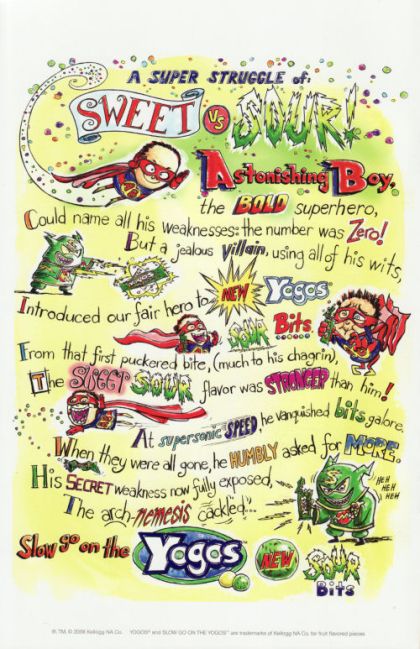 A SUPER STRUGGLE of:
SWEET VS SOUR!
Astonishing Boy,
the BOLD superhero,
Could name all his weaknesses: the number was Zero!
But a jealous villain, using all of his wits,
Introduced our fair hero to NEW Yogos
SOUR Bits.
From that first puckered bite, (much to his chagrin),
The SWEET SOUR flavor was STRONGER than him!
At supersonic SPEED, he vanquished bits galore.
When they were all gone, he HUMBLY asked for MORE.
His SECRET weakness now fully exposed,
The arch-nemesis cackled"...
HEH
HEH
HEH
Slow go on the Yogos NEW SOUR
Bits
®, TM, © 2008 Kellogg NA Co. YOGOS® and SLOW GO ON THE YOGOS™ are trademarks of Kellogg NA Co. for fruit flavored pieces